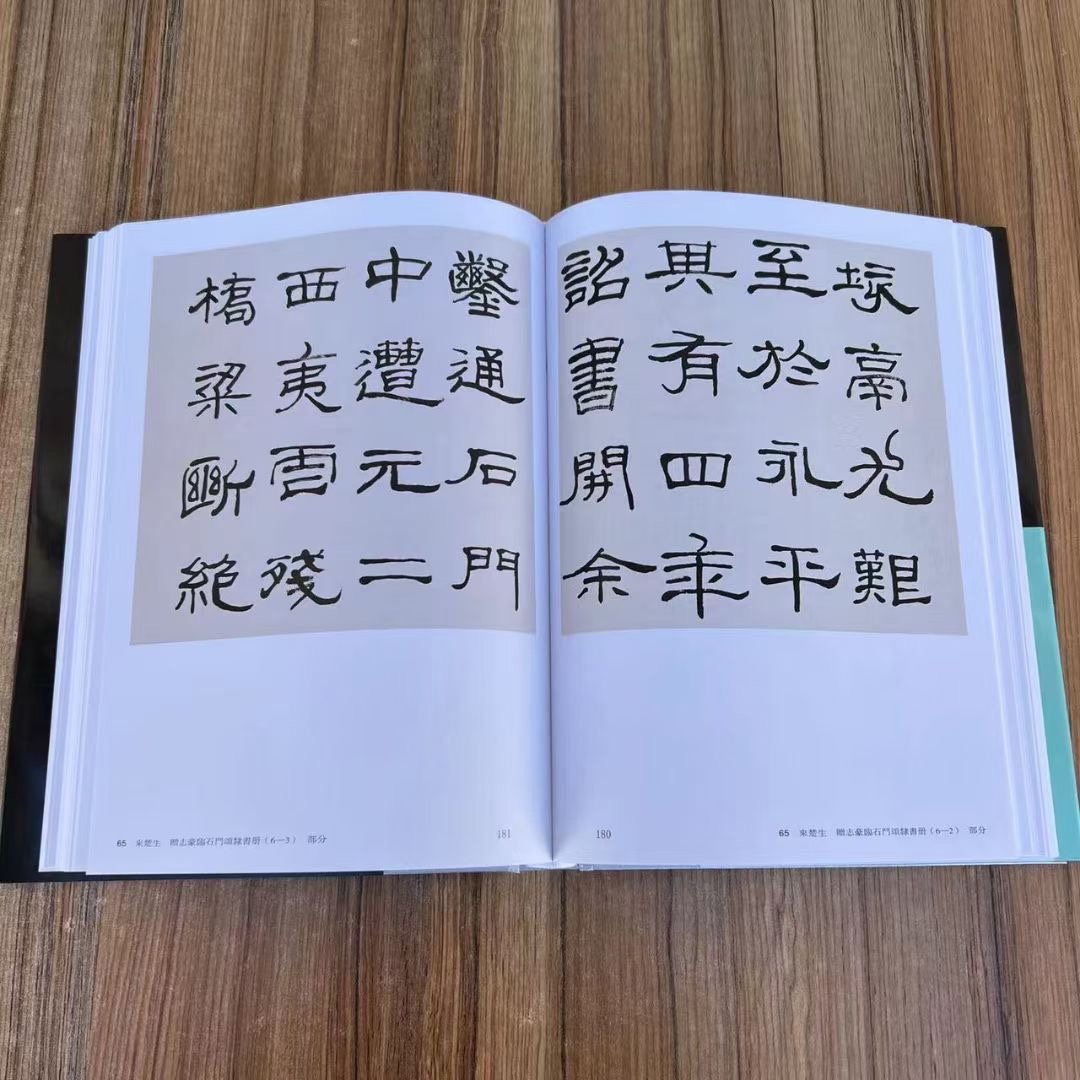 垓鬲尤艱
至於永平
其有四年
詔書開余
65 來楚生 贈志豪臨石門頌隸書册(6—2) 部分
180
鑿通石門
中遭元二
西夷虐殘
橋梁斷絶
65 來楚生 贈志豪臨石門頌隸書册(6—3) 部分
181